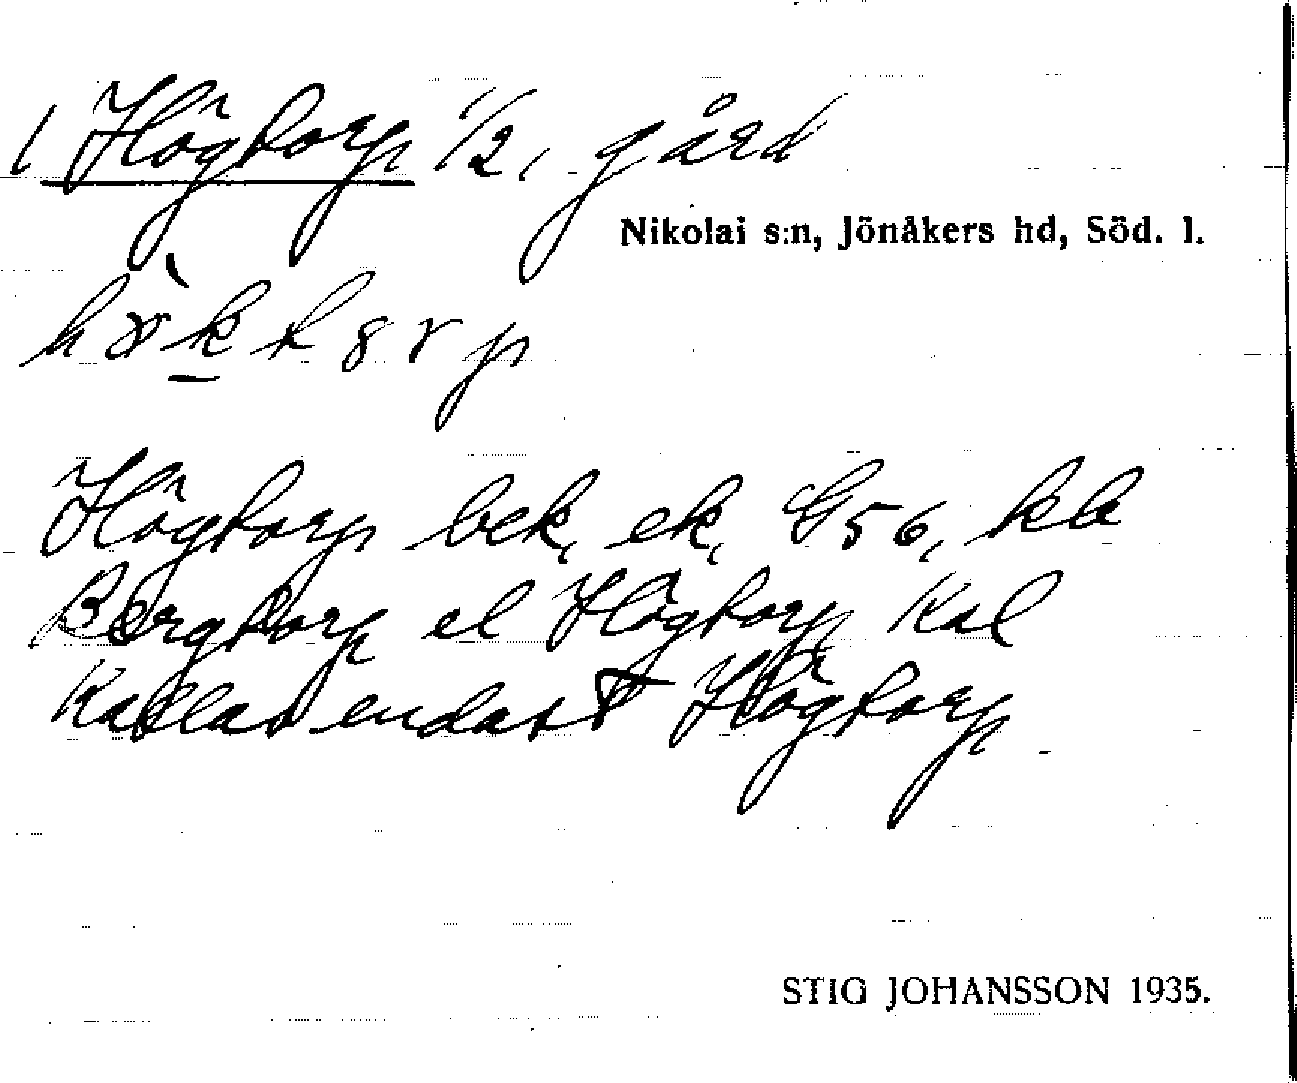 1 Högtorp 1/2, gård
Nikolai s:n, Jönåkers hd, Söd. l.
Högtorp bek, ek, G56, kb
Bergtorp el Högtorp Kal
Kallas endast Högtorp
STIG JOHANSSON 1935.